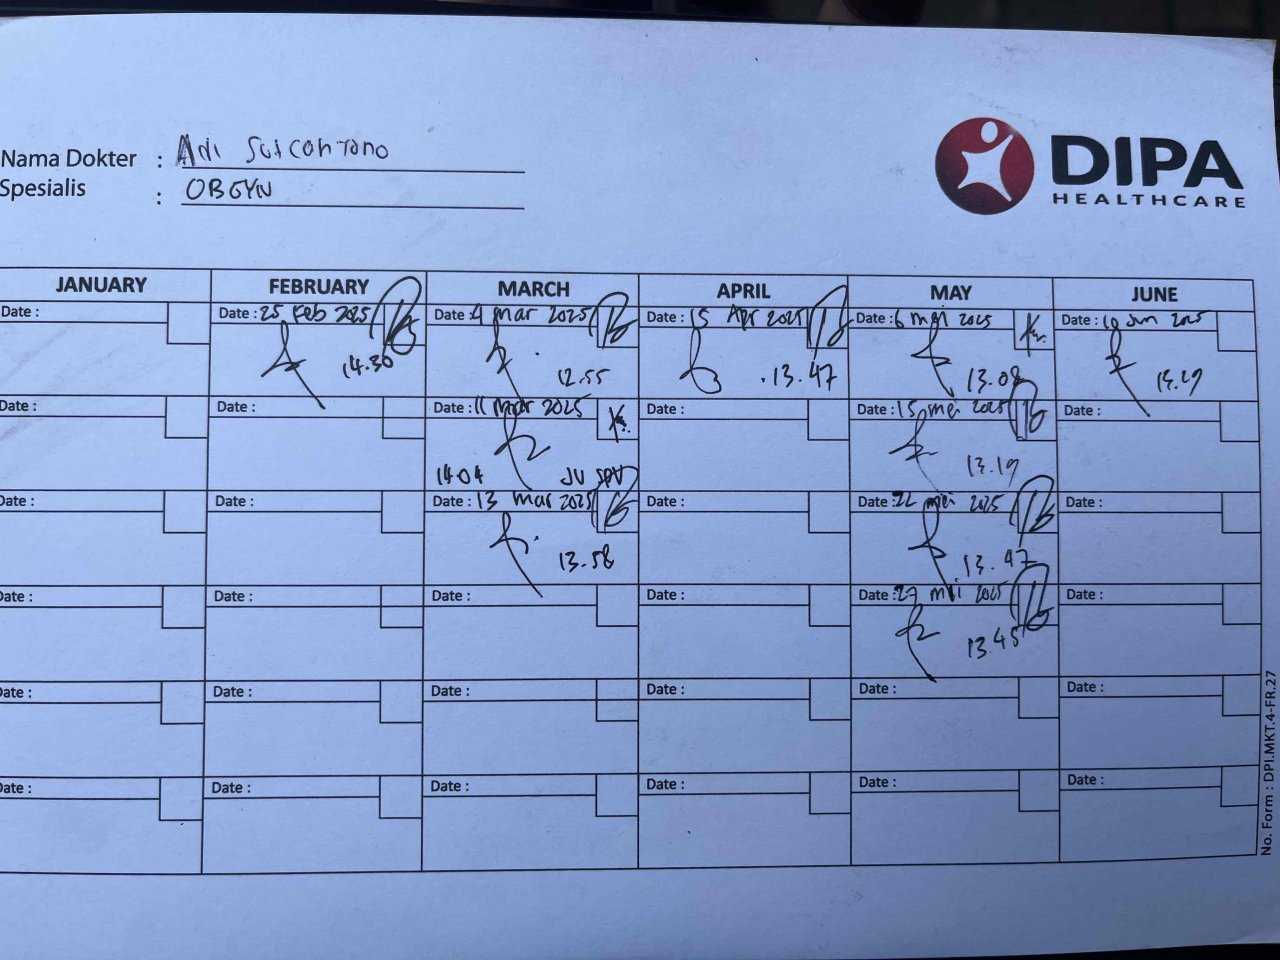 Nama Dokter :
Spesialis : OBGYN
DIPA
HEALTHCARE
JANUARY FEBRUARY MARCH APRIL MAY JUNE
Date : Date : 25 Feb 2025 Date : 4 mar 2025 Date : 15 Apr 2025 Date : 6 mei 2025 Date : 10 Jun 2025
14.30 12.55 13.47 13.08
Date : Date : Date : 11 mar 2025 Date : Date : 15 mei 2025 Date :
1404 13.19
Date : Date : Date : 13 mar 2025 Date : Date : 22 mei 2025 Date :
13.58 13.47
Date : Date : Date : Date : Date : 27 mei 2025 Date :
13.45
Date : Date : Date : Date : Date : Date :
Date : Date : Date : Date : Date : Date :
No. Form : DPI.MKT.4-FR.27